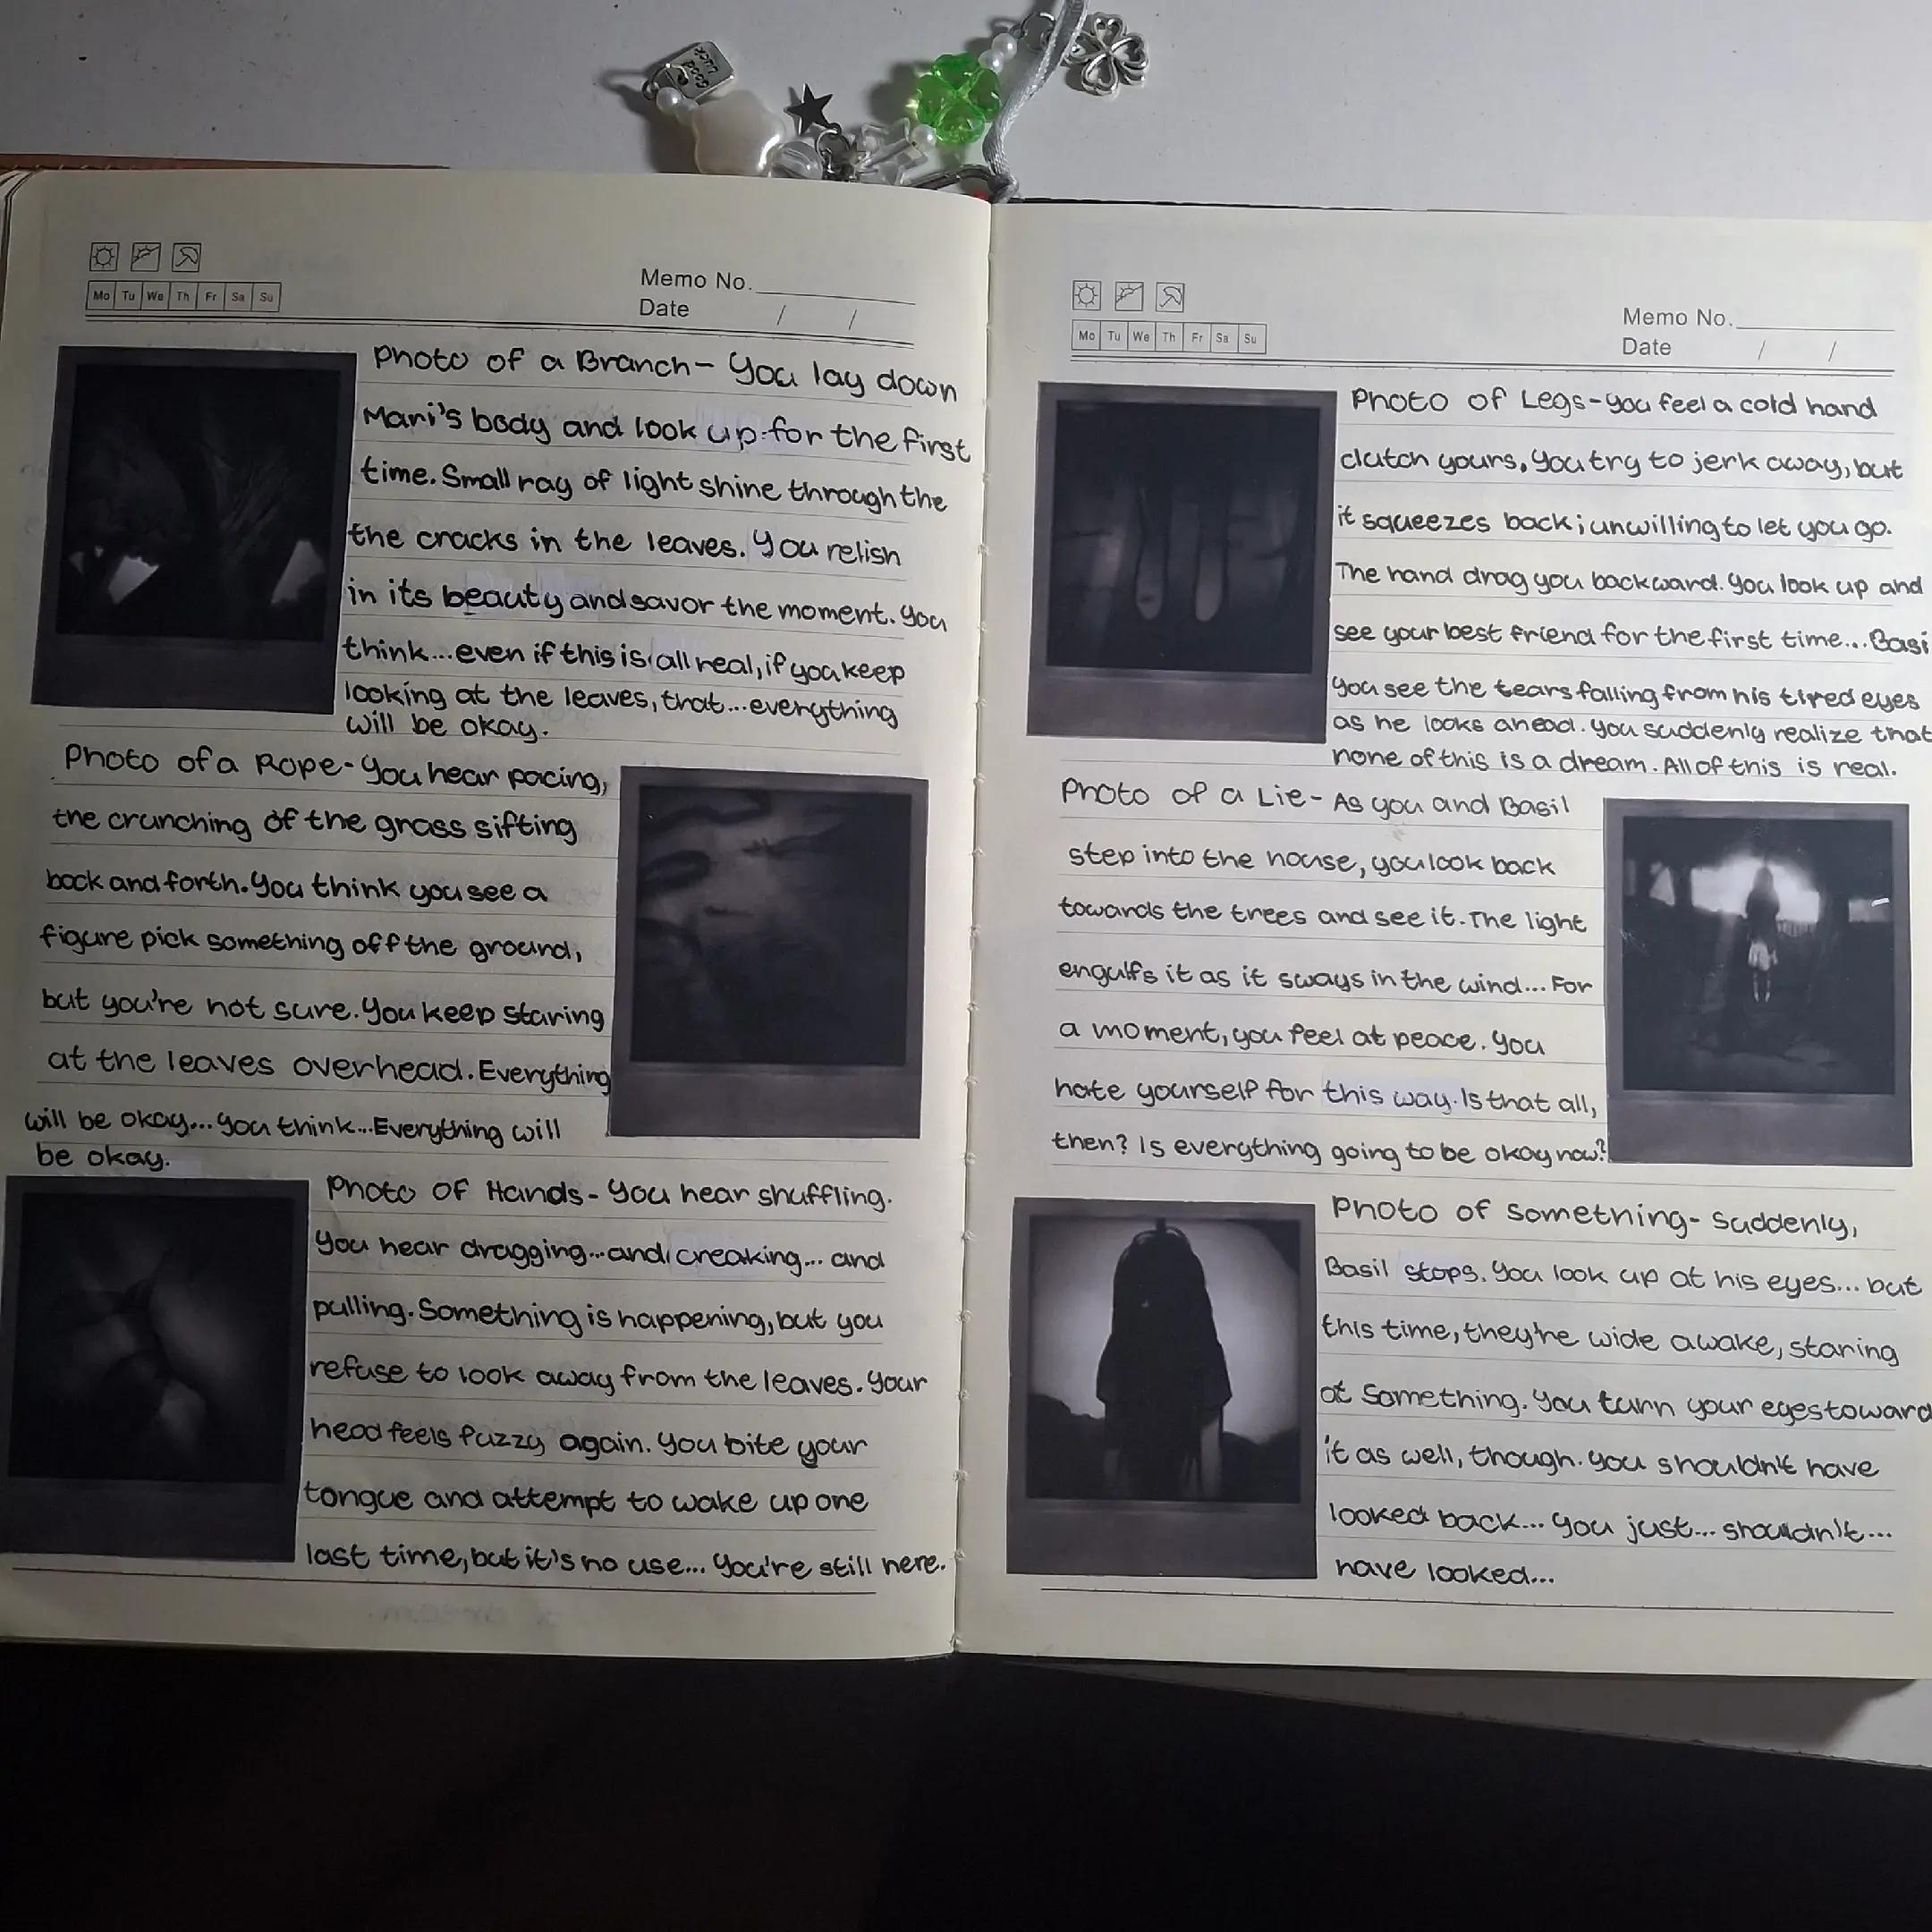 Good Luck
Mo Tu We Th Fr Sa Su
Memo No.
Date / /
Photo of a Branch- You lay down
Mari's body and look up for the first
time. Small ray of light shine through the
the cracks in the leaves. You relish
in its beauty and savor the moment. You
think...even if this is all real, if you keep
looking at the leaves, that...everything
will be okay.
Photo of a Rope- You hear pacing,
the crunching of the grass sifting
back and forth. You think you see a
figure pick something off the ground,
but you're not sure. You keep staring
at the leaves overhead. Everything
will be okay... You think...Everything will
be okay.
Photo of Hands- You hear shuffling.
You hear dragging...and creaking... and
pulling. Something is happening, but you
refuse to look away from the leaves. Your
head feels fuzzy again. You bite your
tongue and attempt to wake up one
last time, but it's no use... You're still here.
Mo Tu We Th Fr Sa Su
Memo No.
Date / /
Photo of Legs- You feel a cold hand
clutch yours. You try to jerk away, but
it squeezes back; unwilling to let you go.
The hand drag you backward. You look up and
see your best friend for the first time... Basi
You see the tears falling from his tired eyes
as he looks ahead. You suddenly realize that
none of this is a dream. All of this is real.
Photo of a Lie- As you and Basil
step into the house, you look back
towards the trees and see it. The light
engulfs it as it sways in the wind... For
a moment, you feel at peace. You
hate yourself for this way. Is that all,
then? Is everything going to be okay now?
Photo of Something- Suddenly,
Basil stops. You look up at his eyes... but
this time, they're wide awake, staring
at Something. You turn your eyes toward
it as well, though. You shouldn't have
looked back... You just... shouldn't...
have looked...